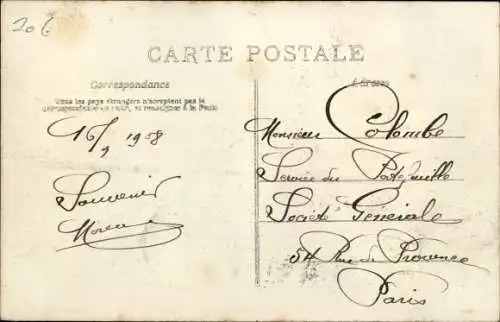 206
CARTE POSTALE
Correspondance
Tous les pays étrangers n'acceptent pas la
correspondance au recto, se renseigner à la Poste
Adresse
16/9 1908
Souvenir
Monsieur Colombe
Service du Portefeuille
Société Générale
54 Rue de Provence
Paris